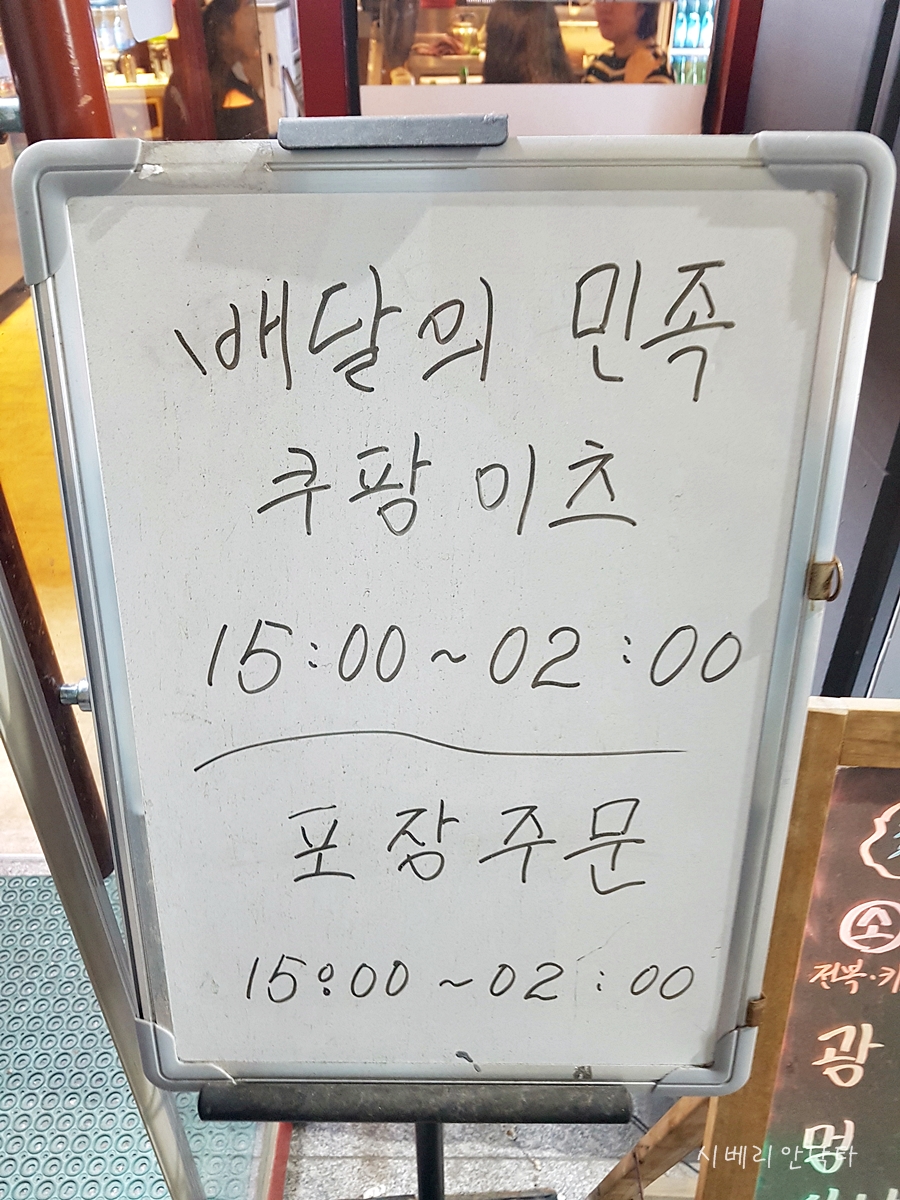 배달의 민족
쿠팡 이츠
15:00~02:00
포장주문
15:00~02:00
소
전복·키
광
멍